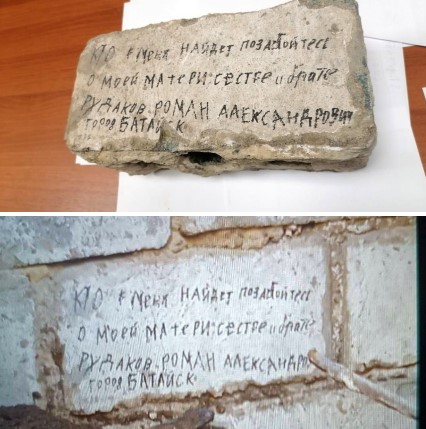 КТО меня НАЙДЕТ позаботйтесь
о моей матери: сестре и брате
РУДАКОВ. РОМАН АЛЕКСАНДРОВИЧ
город БАТАЙСК
КТО меня НАЙДЕТ позаботйтесь
о моей матери: сестре и брате
РУДАКОВ. РОМАН АЛЕКСАНДРО
город БАТАЙСК